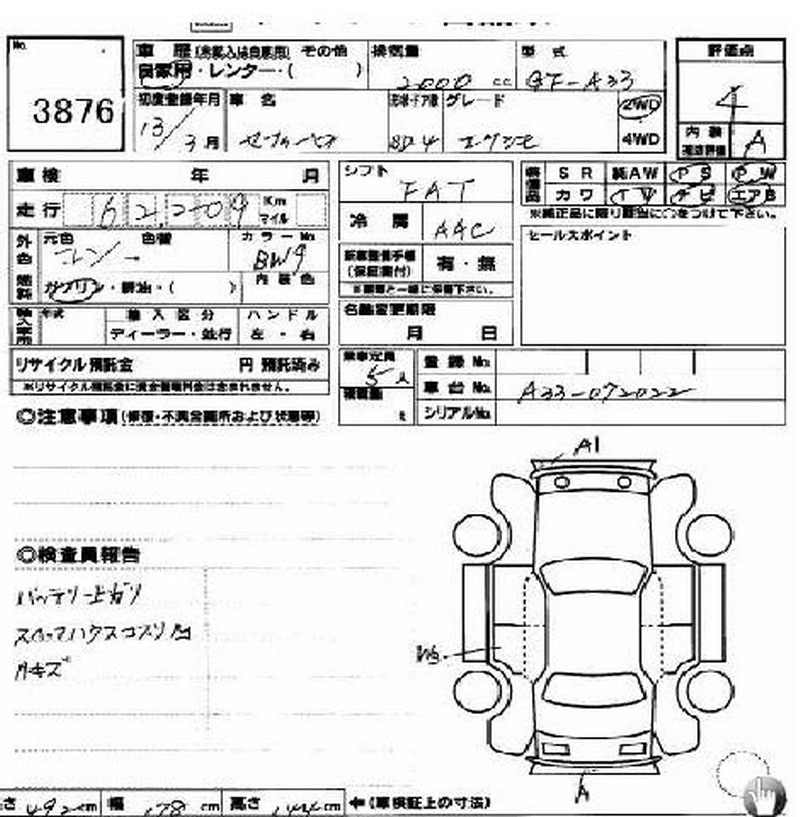 No.
3876
車歴(未記入は自家用) その他
自家用・レンター・( )
排気量
2000 cc
型式
GF-A33
評価点
4
初度登録年月
13/3月
車名
セフィーロ
グレード
エクシモ
2WD
4WD
内装
A
車検 年 月
走行 62209 Km マイル
外色 元色 色替 カラーNo
BW9
燃料 ガソリン・軽油・( ) 内装色
年式 輸入区分 ハンドル
ディーラー・並行 左・右
リサイクル預託金 円 預託済み
※リサイクル預託金に資金管理料金は含まれません。
シフト
FAT
冷房
AAC
(保証書付)
有・無
名義変更期限
月 日
乗車定員
5人
積載量
t
装備品 SR 純AW PS PW
カワ TV ナビ エアB
※純正品に限り該当に○をつけて下さい。
セールスポイント
登録No.
車台No. A33-072022
シリアルNo.
◎注意事項(修復・不具合箇所および状態等)
A1
◎検査員報告
バッテリー上がり
内キズ
W3
A
cm 幅 178 cm 高さ 144 cm ←(車検証上の寸法)